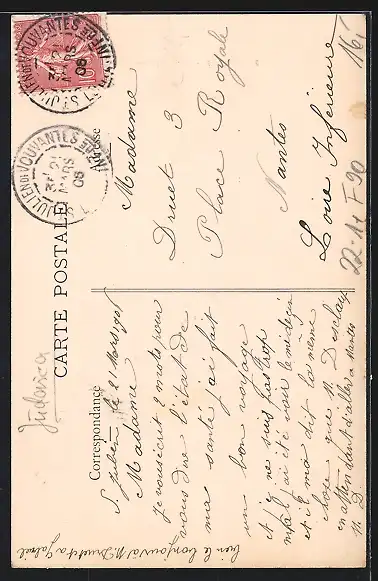 CARTE POSTALE
Correspondance
Adresse
ST JULIEN DE VOUVANTES
LOIRE INFRE
21
MARS
06
ST JULIEN DE VOUVANTES
MARS
06
10
Madame
Druet 3
Place Royale
Nantes
Loire Inférieure
S Julien le 21 Mars 1906
Madame
je vous écrit 2 mots pour
vous dire l'état de
ma santé j'ai fait
un bon voyage
et je ne suis pas trop
mal j'ai été voir le médecin
et il m'a dit la même
chose que M. Desclaux
en attendant d'aller a Nantes
M. D.
bien le bonjour a M. Druet et a Gabriel
16f
22-11-F90